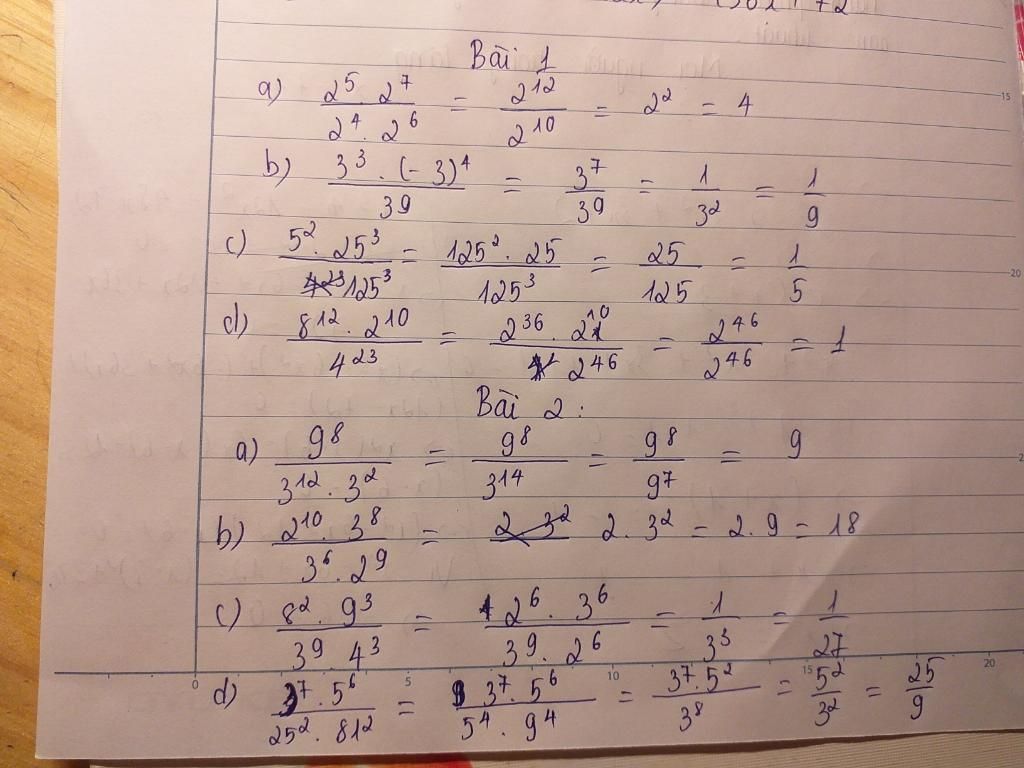 Bài 1
a) \frac{2^5 . 2^7}{2^4 . 2^6} = \frac{2^{12}}{2^{10}} = 2^2 = 4
b) \frac{3^3 . (-3)^4}{3^9} = \frac{3^7}{3^9} = \frac{1}{3^2} = \frac{1}{9}
c) \frac{5^2 . 25^3}{125^3} = \frac{125^2 . 25}{125^3} = \frac{25}{125} = \frac{1}{5}
d) \frac{8^{12} . 2^{10}}{4^{23}} = \frac{2^{36} . 2^{10}}{2^{46}} = \frac{2^{46}}{2^{46}} = 1
Bài 2 :
a) \frac{9^8}{3^{12} . 3^2} = \frac{9^8}{3^{14}} = \frac{9^8}{9^7} = 9
b) \frac{2^{10} . 3^8}{3^6 . 2^9} = 2 . 3^2 = 2 . 9 = 18
c) \frac{8^2 . 9^3}{3^9 . 4^3} = \frac{2^6 . 3^6}{3^9 . 2^6} = \frac{1}{3^3} = \frac{1}{27}
d) \frac{3^7 . 5^6}{25^2 . 81^2} = \frac{3^7 . 5^6}{5^4 . 9^4} = \frac{3^7 . 5^2}{3^8} = \frac{5^2}{3^2} = \frac{25}{9}
0 5 10 15 20
15
20